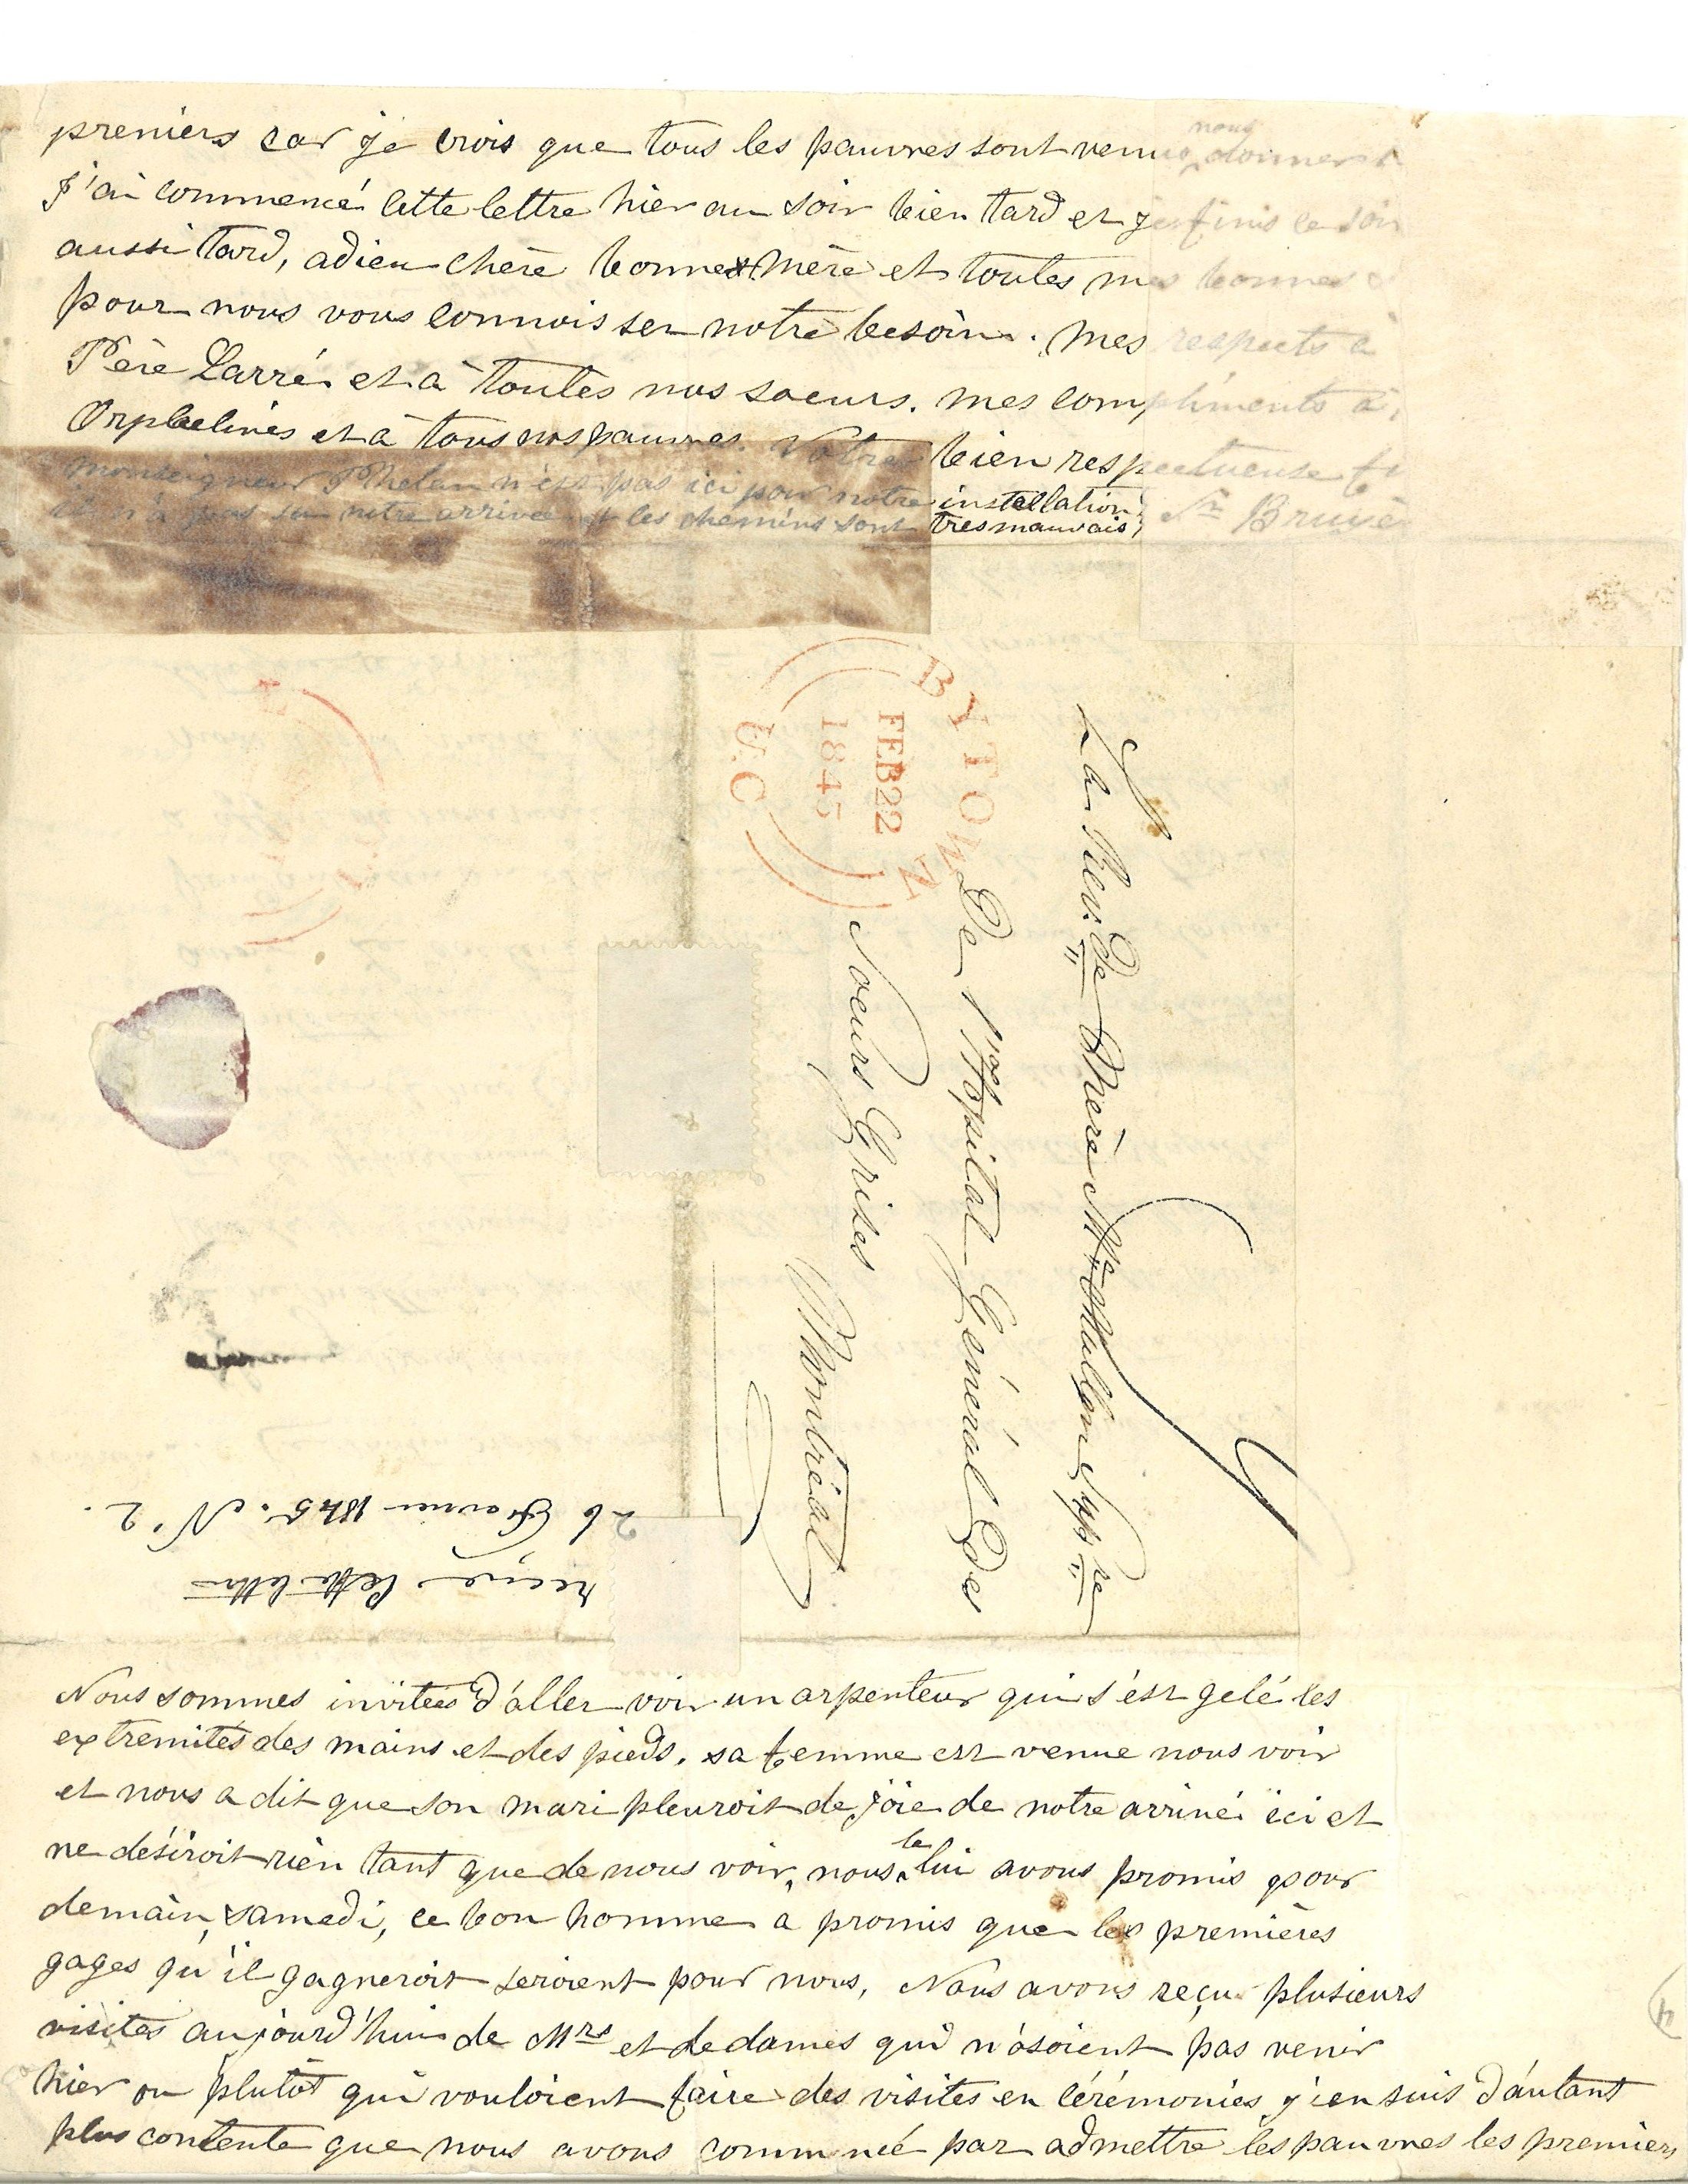 preniers car je crois que tous les pauvres sont venus nous donner
J'ai commencé cette lettre hier au soir bien tard et je finis ce soir
aussi tard, adieu chère bonne Mère et toutes mes bonnes
pour nous vous connoissez notre besoin. Mes respects à
Père Larré et à toutes nos soeurs. mes compliments à
Orphelines et à tous nos pauvres. Votre bien respectueuse
Monseigneur Phelan n'est pas ici pour notre installation
il n'a pas su notre arrivée & les chemins sont très mauvais,
Sr Bruyè
BYTOWN
FEB 22
1845
U.C
La Rev.de Mère McMullen Supre
De l'Hôpital Général Des
Soeurs Grises
Montréal
reçue cette lettre
26 Fevrier 1845. N° 2.
Nous sommes invitées d'aller voir un arpenteur qui s'est gelé les
extremités des mains et des pieds. sa femme est venue nous voir
et nous a dit que son mari pleuroit de joie de notre arrivé ici et
ne désiroit rien tant que de nous voir, nous le lui avons promis pour
demain, samedi, ce bon homme a promis que les premières
gages qu'il gagneroit seroient pour nous, Nous avons reçu plusieurs
visites aujourd'hui de Mrs et de dames qui n'osoient pas venir
hier ou plutôt qui vouloient faire des visites en cérémonies j'en suis d'autant
plus contente que nous avons commncé par admettre les pauvres les premiers
4